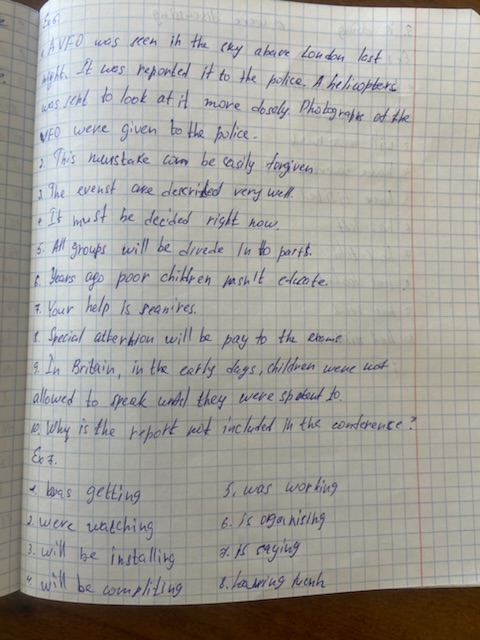 Ex6
1. A VFO was seen in the sky above London last
night. It was reported it to the police. A helicopters
was sent to look at it more closely. Photographs of the
VFO were given to the police.
2. This mustake can be easily forgiven
3. The evenst are described very well.
4. It must be decided right now.
5. All groups will be divede in to parts.
6. Years ago poor children wasn't educate.
7. Your help is
8. Special attention will be pay to the exams
9. In Britain, in the early days, children were not
allowed to speak until they were to.
10. Why is the report not included in the conference?
Ex 7.
1. was getting
2. were watching
3. will be installing
4. will be compliting
5. was working
6. is organising
7. is saying
8.